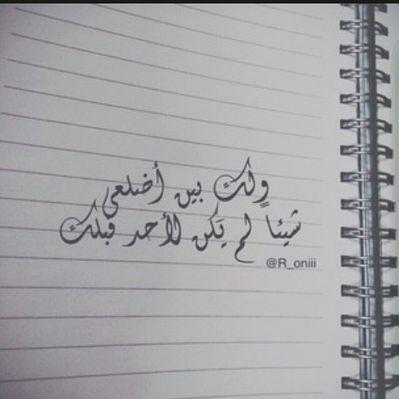 ولك بين أضلعي
شيئاً لم يكن لأحد قبلك
@R_oniii